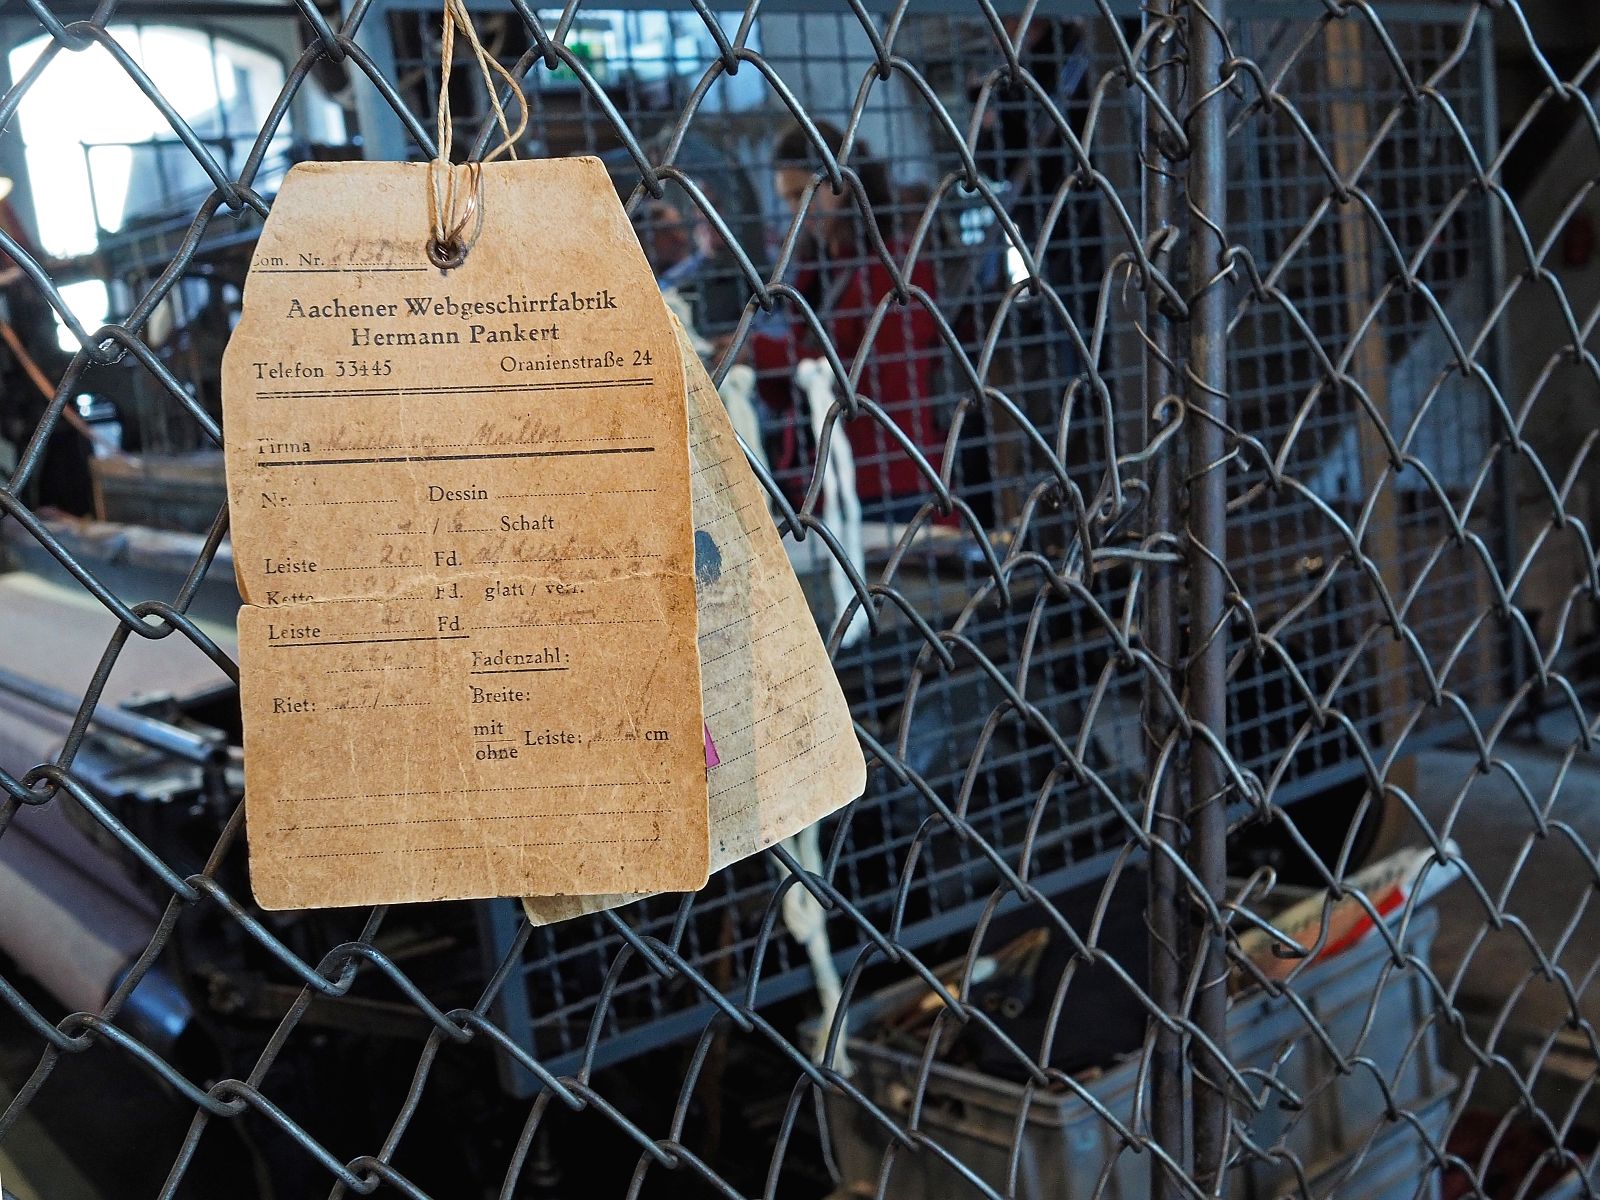 Com. Nr.
Aachener Webgeschirrfabrik
Hermann Pankert
Telefon 33445 Oranienstraße 24
Firma Müller
Nr. Dessin
/ Schaft
Leiste 20 Fd.
Kette Fd. glatt / verr.
Leiste Fd.
Fadenzahl:
Riet: / Breite:
mit
ohne Leiste: cm